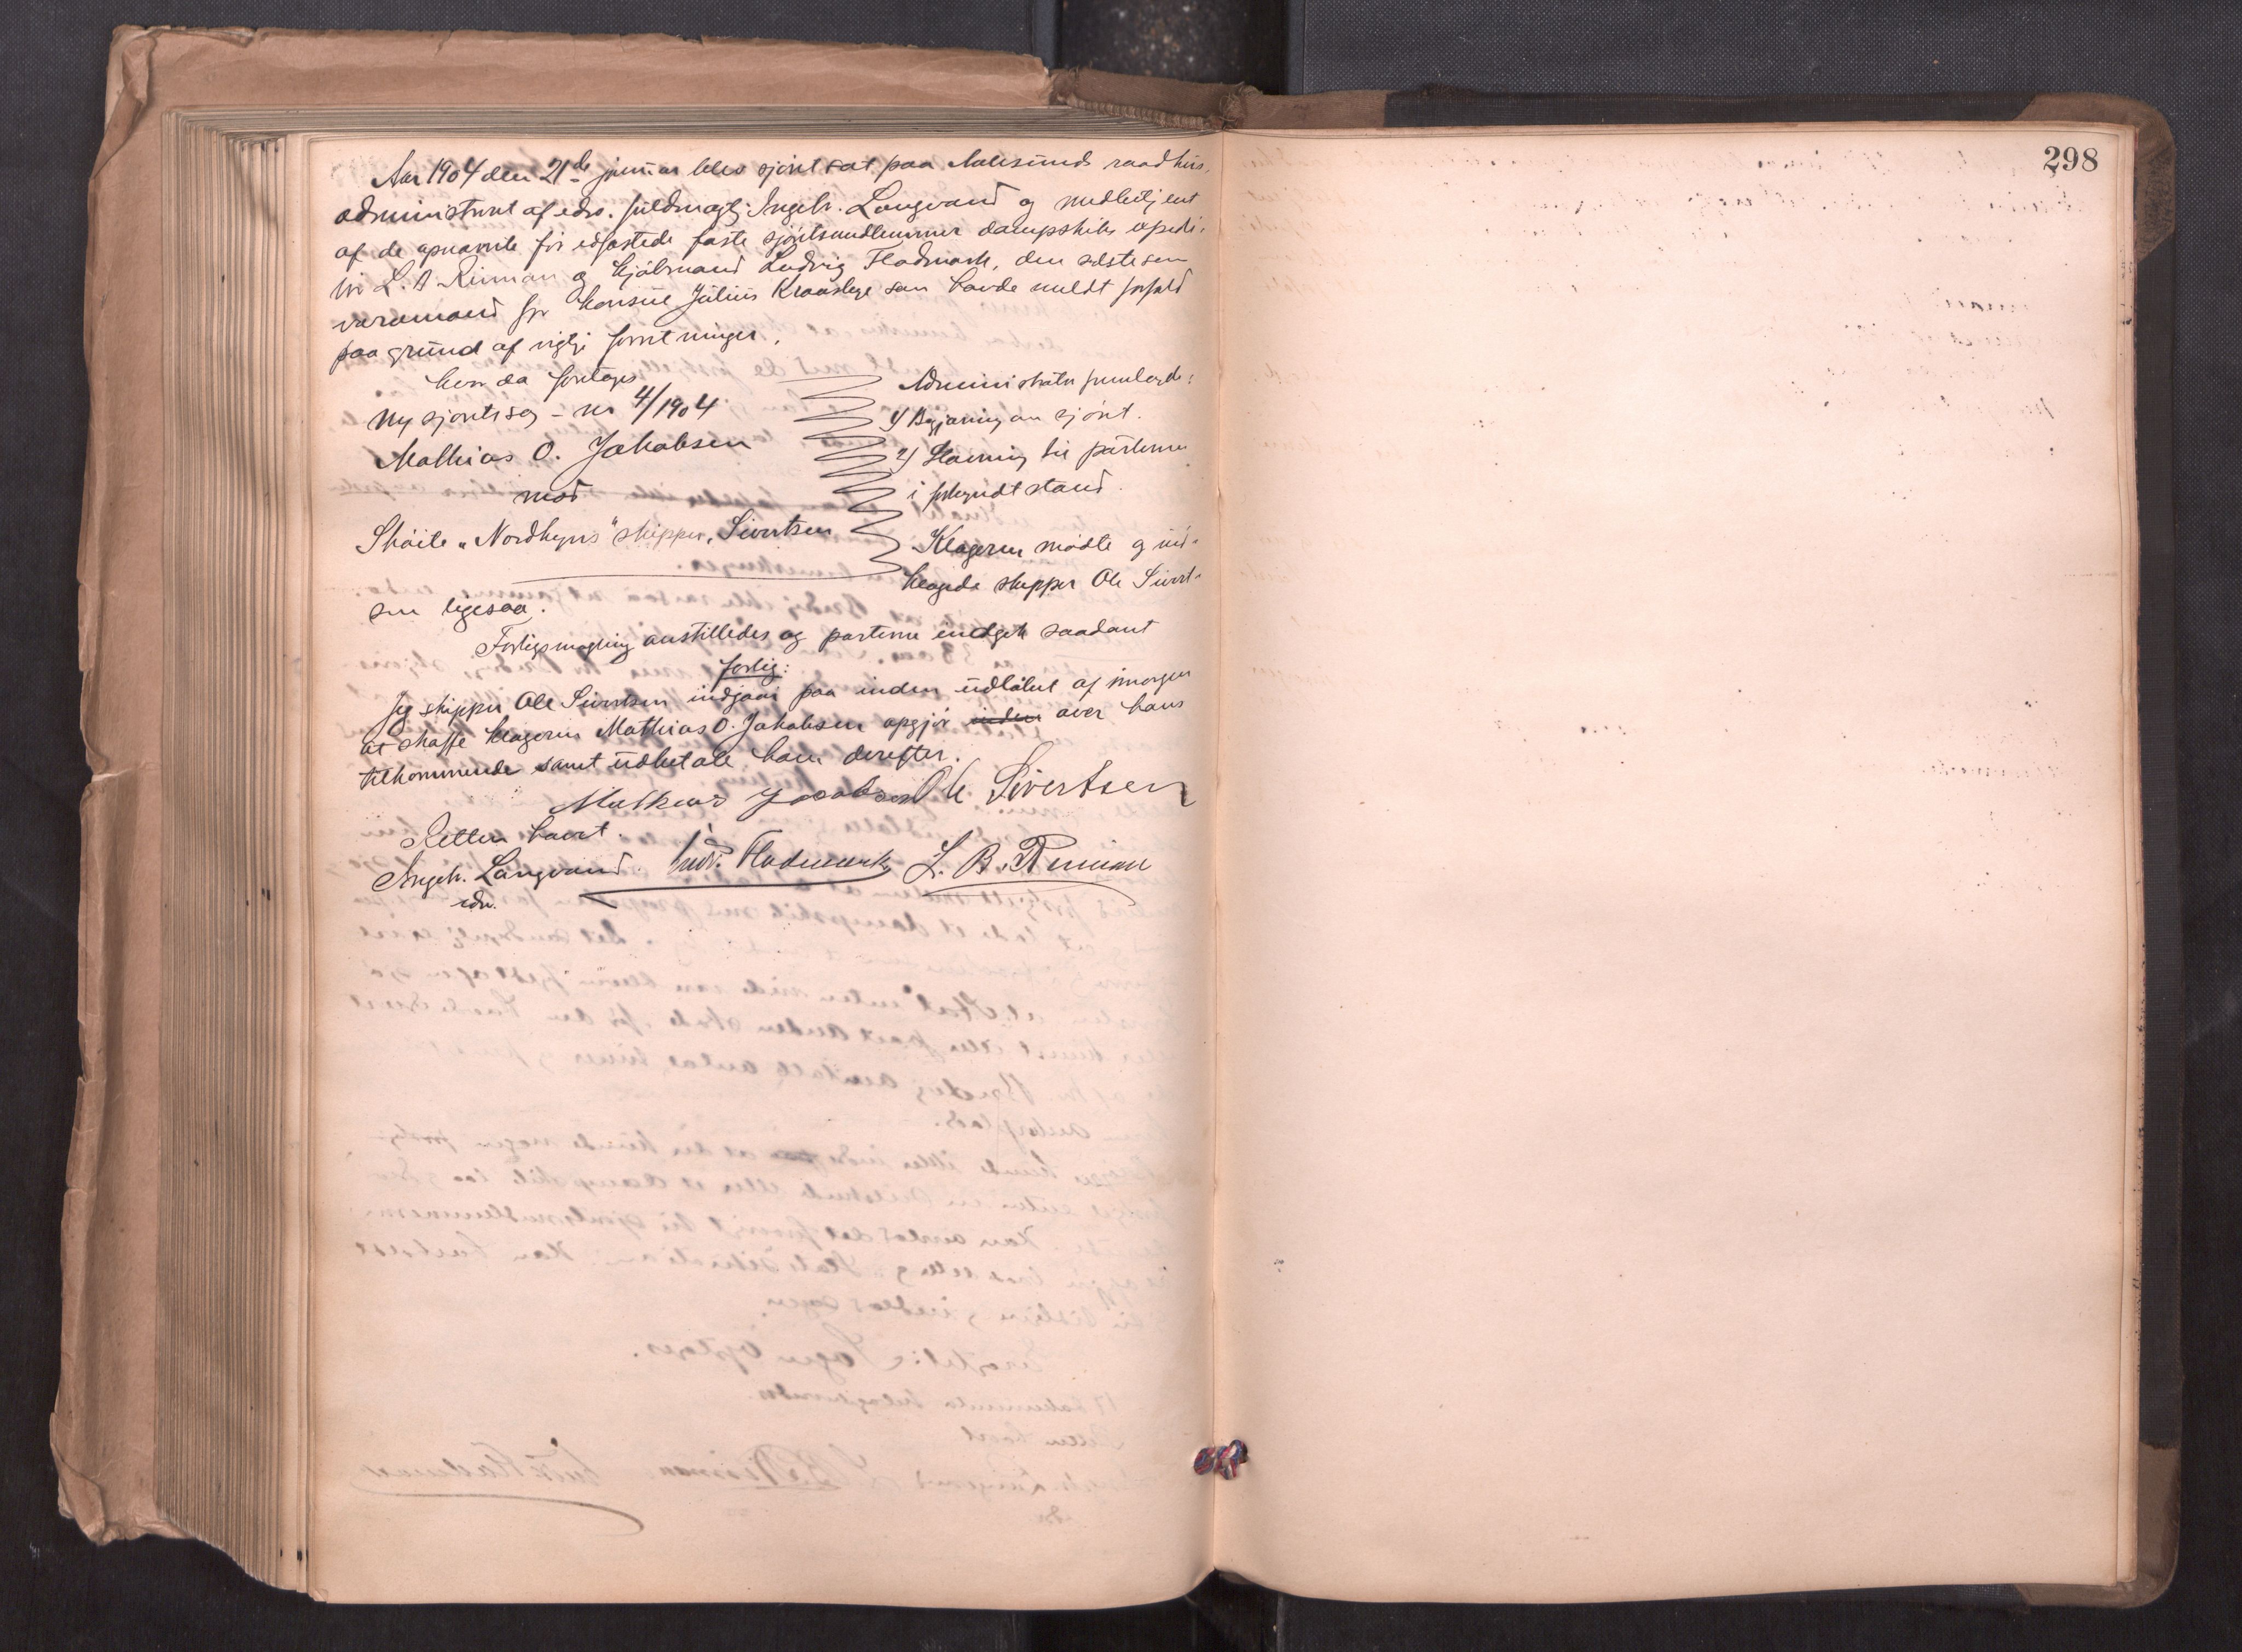 298
Aar 1904 den 21de januar blev sjöret sat paa Aalesunds raadhus,
administreret af edsv. fuldmægtig Ingebr. Langvand og medbetjent
af de opnævnte før edfæstede faste sjöretsmedlemmer dampskibs expedi-
tör L. B. Reiman og kjöbmand Ludvig Fladmark, den sidste som
varamand for konsul Julius Kraasbye som havde meldt forfald
paa grund af vigtige forretninger.
hvor da foretoges
Ny sjöretssag - no 4/1904
Mathias O. Jakobsen
mod
Sköite "Nordhyrs" skipper, Sivertsen
Administrator fremlagde:
1/ Begjæring om sjöret.
2/ Stævning til parterne
i forkyndt stand.
Klageren mödte og ind-
klagede skipper Ole Sivert-
sen ligesaa.
Forligsmægling anstilledes og parterne indgik saadant
forlig:
Jeg skipper Ole Sivertsen indgaar paa inden udlöbet af imorgen
at skaffe klageren Mathias O. Jakobsen opgjör inden over hans
tilkommende samt udbetale ham derefter.
Mathias Jacobsen Ole Sivertsen
Retten hævet.
Ingebr. Langvand. Ludv. Fladmark L. B. Reiman
edsv.